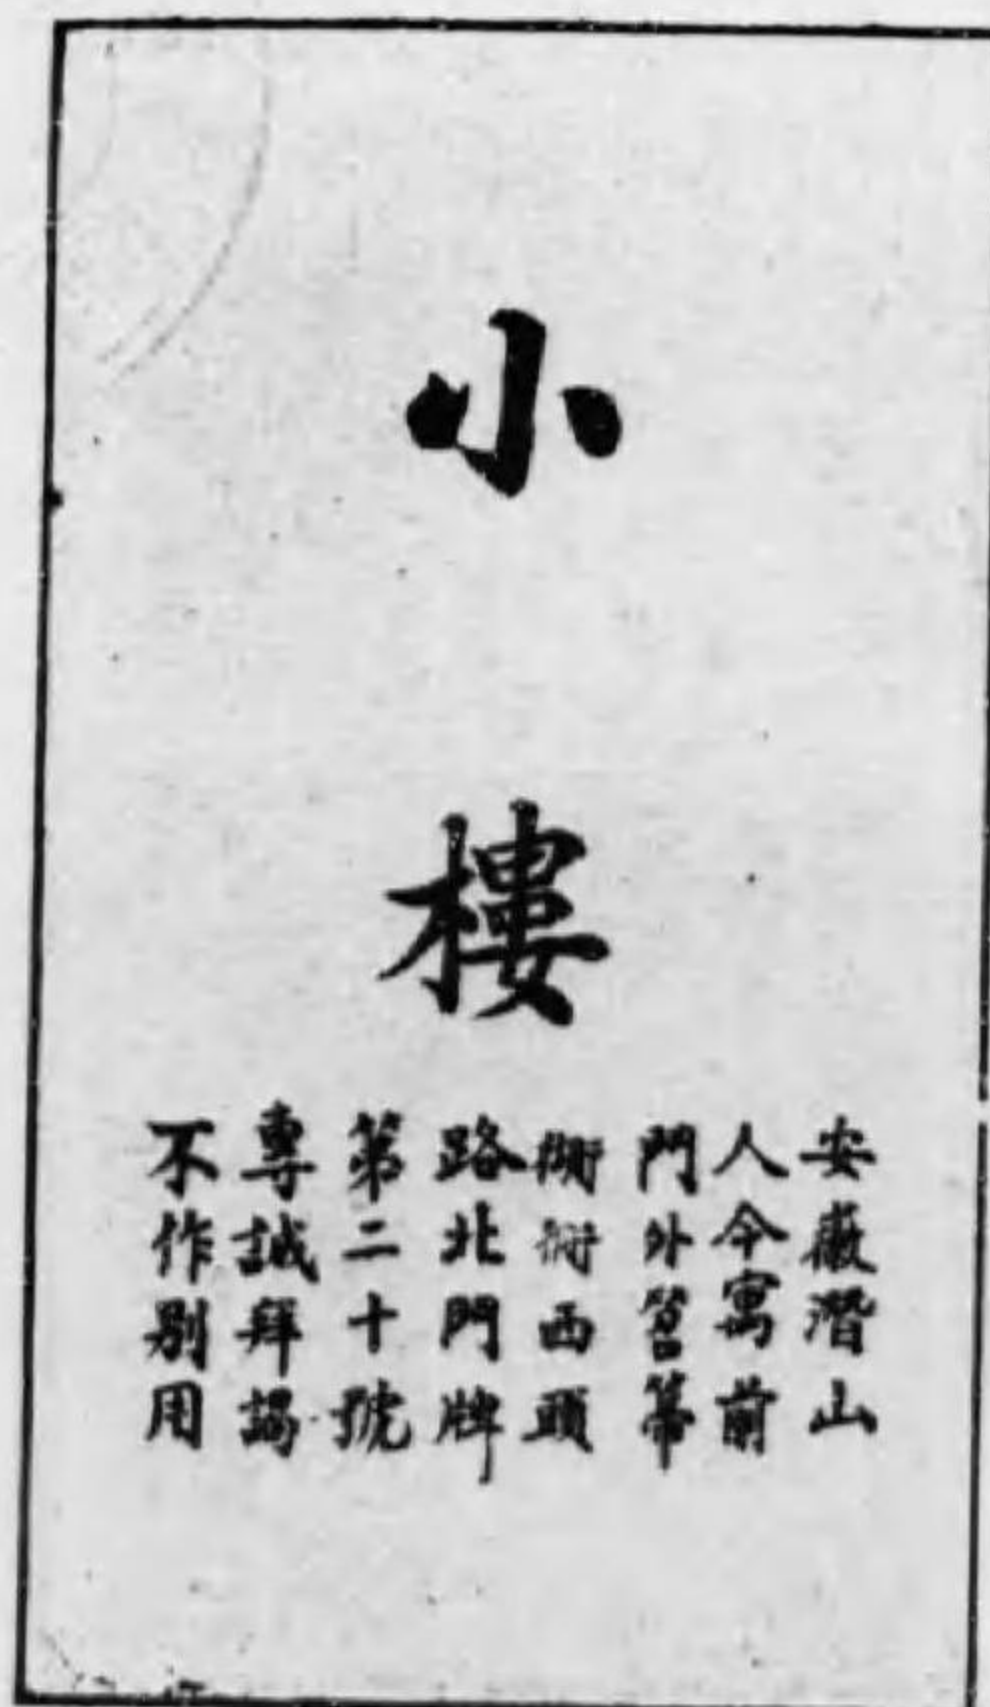 小樓
安徽潛山
人今寓前
門外笤箒
衚衕西頭
路北門牌
第二十號
專誠拜謁
不作別用